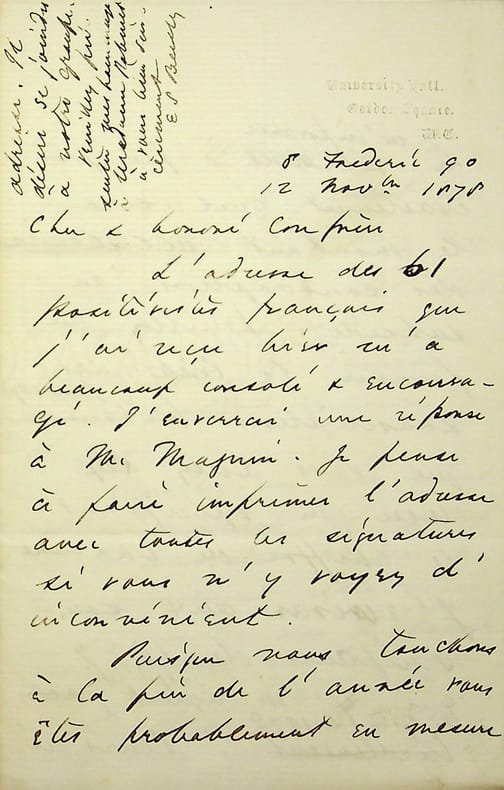 University Hall.
Gordon Square.
W.C.
8 Frederic 90
12 Novbre 1878
Cher & honoré Confrère
L'adresse des 61
positivistes français que
j'ai reçu hier m'a
beaucoup consolé & encoura-
gé. J'enverrai une réponse
à M. Magnin. Je pense
à faire imprimer l'adresse
avec toutes les signatures
si vous n'y voyez d'
inconvénient.
Puisque nous touchons
à la fin de l'année vous
êtes probablement en mesure
adresse. Il
désire se joindre
à notre groupe.
Veuillez pré-
senter mes hommages
à Madame Robinet
à vous bien sin-
cèrement
E S Beesly